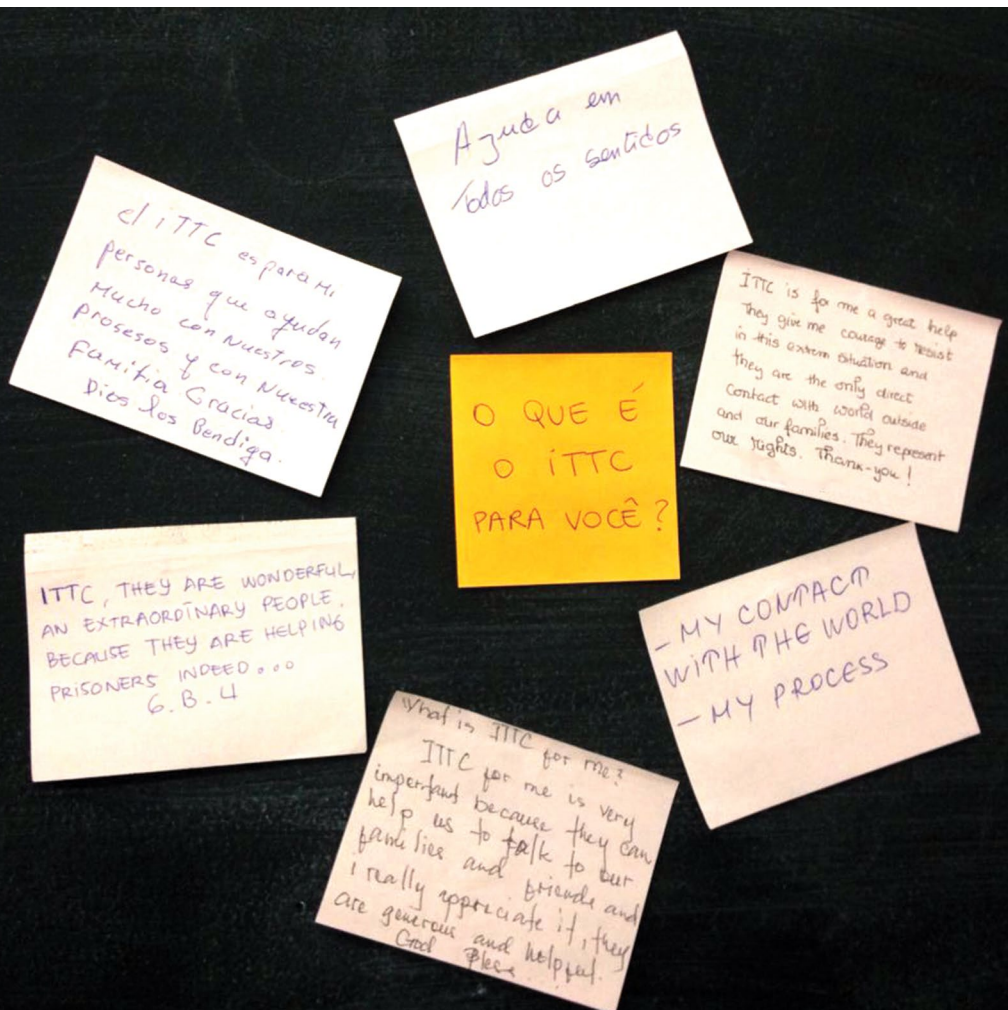 Ayuda em
todos os sentidos
el iTTC es para Mi
personas que ayudan
Mucho con Nuestros.
prosesos y con Nuestra
Familia Gracias.
Dios los Bendiga.
ITTC is for me a great help
They give me courage to resist
in this extrem situation and
they are the only direct
Contact with world outside
and our families. They represent
our rights. Thank-you!
O QUE É
O iTTC
PARA VOCÊ?
ITTC, THEY ARE WONDERFUL,
AN EXTRAORDINARY PEOPLE,
BECAUSE THEY ARE HELPING
PRISONERS INDEED...
6.B.4
- MY CONTACT
WITH THE WORLD
- MY PROCESS
What is ITTC for me?
ITTC for me is very
important because they can
help us to talk to our
families and friends and
i really appriciate it, they
are generous and helpful.
God Bless